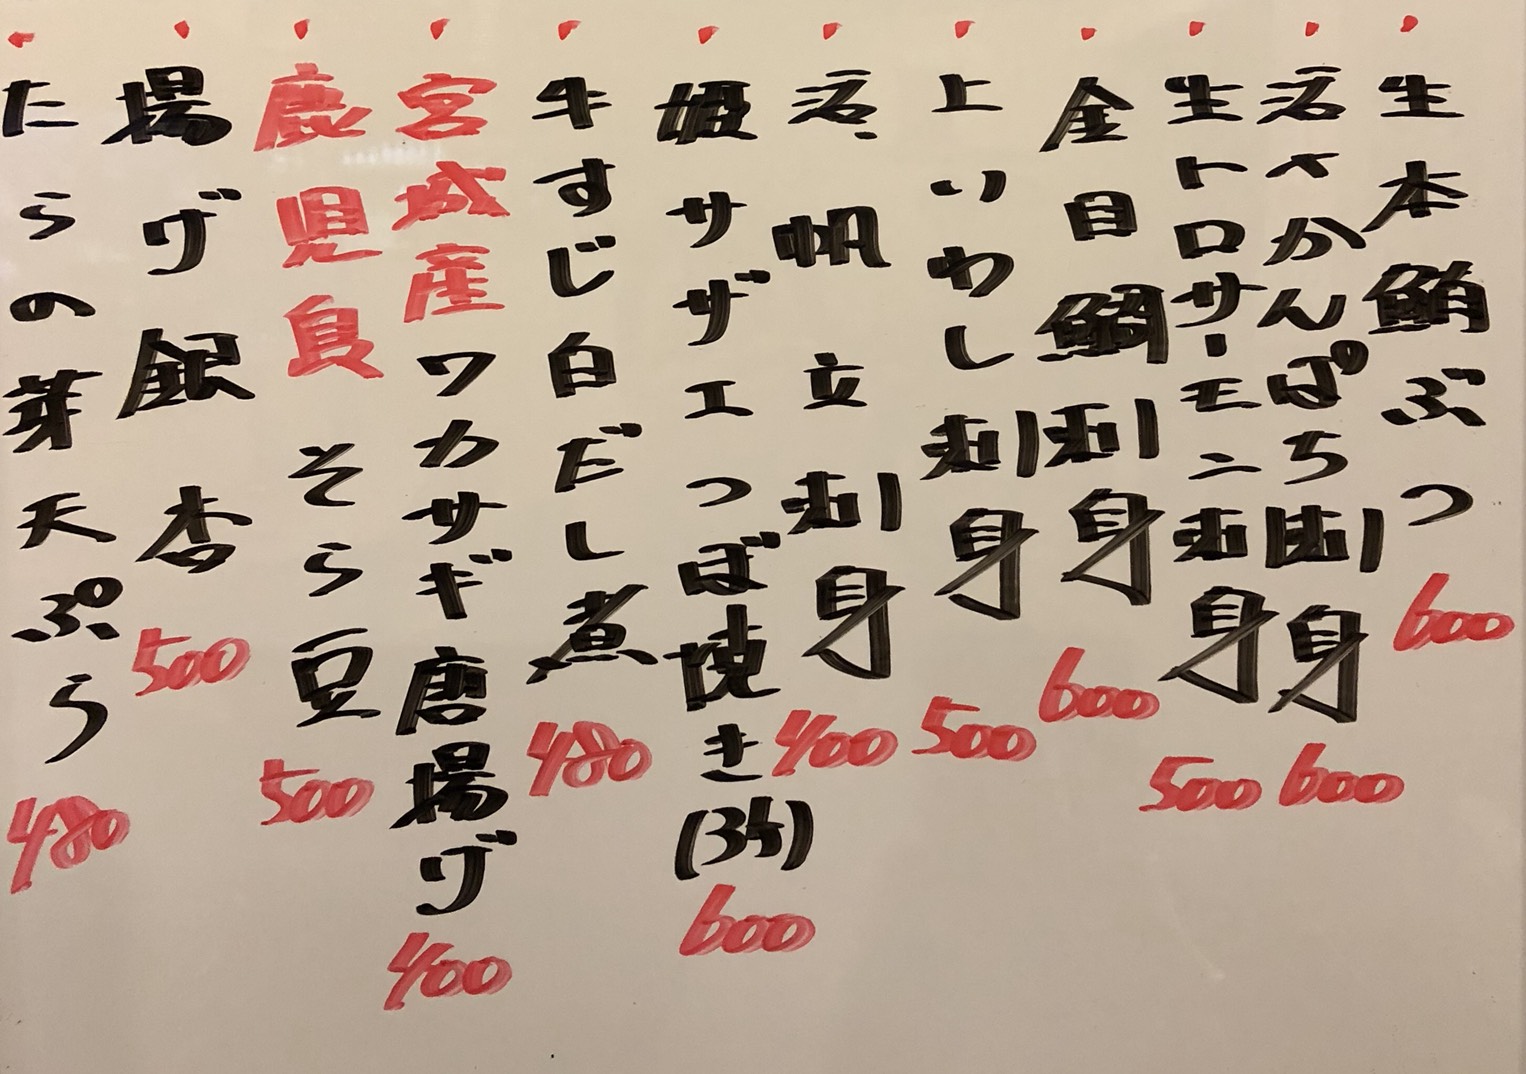 生本鮪ぶつ 600
活〆かんぱち刺身 600
生トロサーモン刺身 500
金目鯛刺身 600
上いわし刺身 500
活帆立刺身 400
姫サザエつぼ焼き(3ケ) 600
牛すじ白だし煮 480
宮城産ワカサギ唐揚げ 400
鹿児島そら豆 500
揚げ銀杏 500
たらの芽天ぷら 480